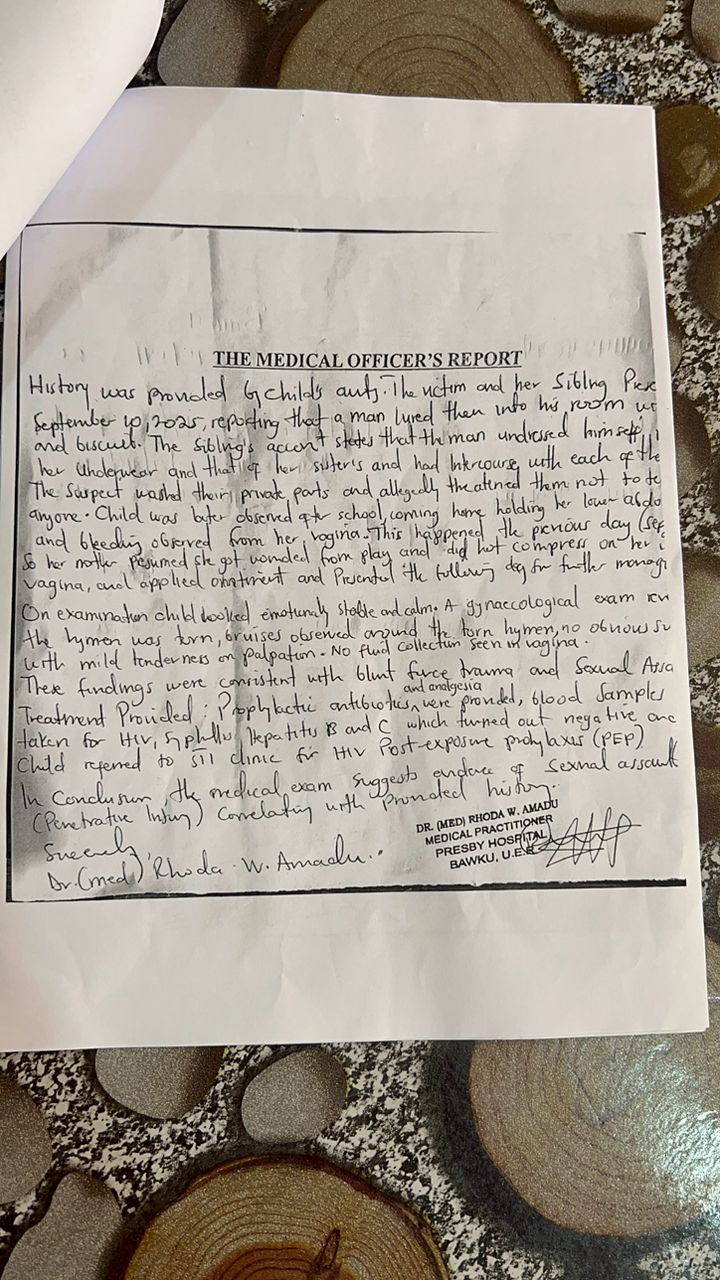 THE MEDICAL OFFICER'S REPORT
History was provided by child's aunty. The victim and her Sibling
September 10, 2025, reporting that a man lured them into his room
and biscuit. The Sibling's account states that the man undressed himself,
her underwear and that of her sister's and had Intercourse with each of the
The Suspect washed their private parts and allegedly theatened them not to
anyone. Child was later observed after school, coming home holding her lower
and bleeding observed from her vagina. This happened the previous day
So her mother presumed she got wounded from play and did hot compress on her
vagina, and applied ointment and Presented the following day for further
On examination child looked emotionally stable and calm. A gynaecological exam
the hymen was torn, bruises observed around the torn hymen, no obvious
with mild tenderness on palpation. No fluid collection seen in vagina.
These findings were consistent with blunt force trauma and Sexual
Treatment Provided: Prophylactic antibiotics and analgesia were provided, blood Samples
taken for HIV, Syphilis, Hepatitis B and C which turned out negative
Child referred to STI clinic for HIV Post-exposure prohylaxis (PEP)
In Conclusion, the medical exam suggests evidence of Sexual assault
(Penetrative Injury) Correlating with Provided history.
Sincerely,
Dr. (med) Rhoda. W. Amadu.
DR. (MED) RHODA W. AMADU
MEDICAL PRACTITIONER
PRESBY HOSPITAL
BAWKU, U.E.R